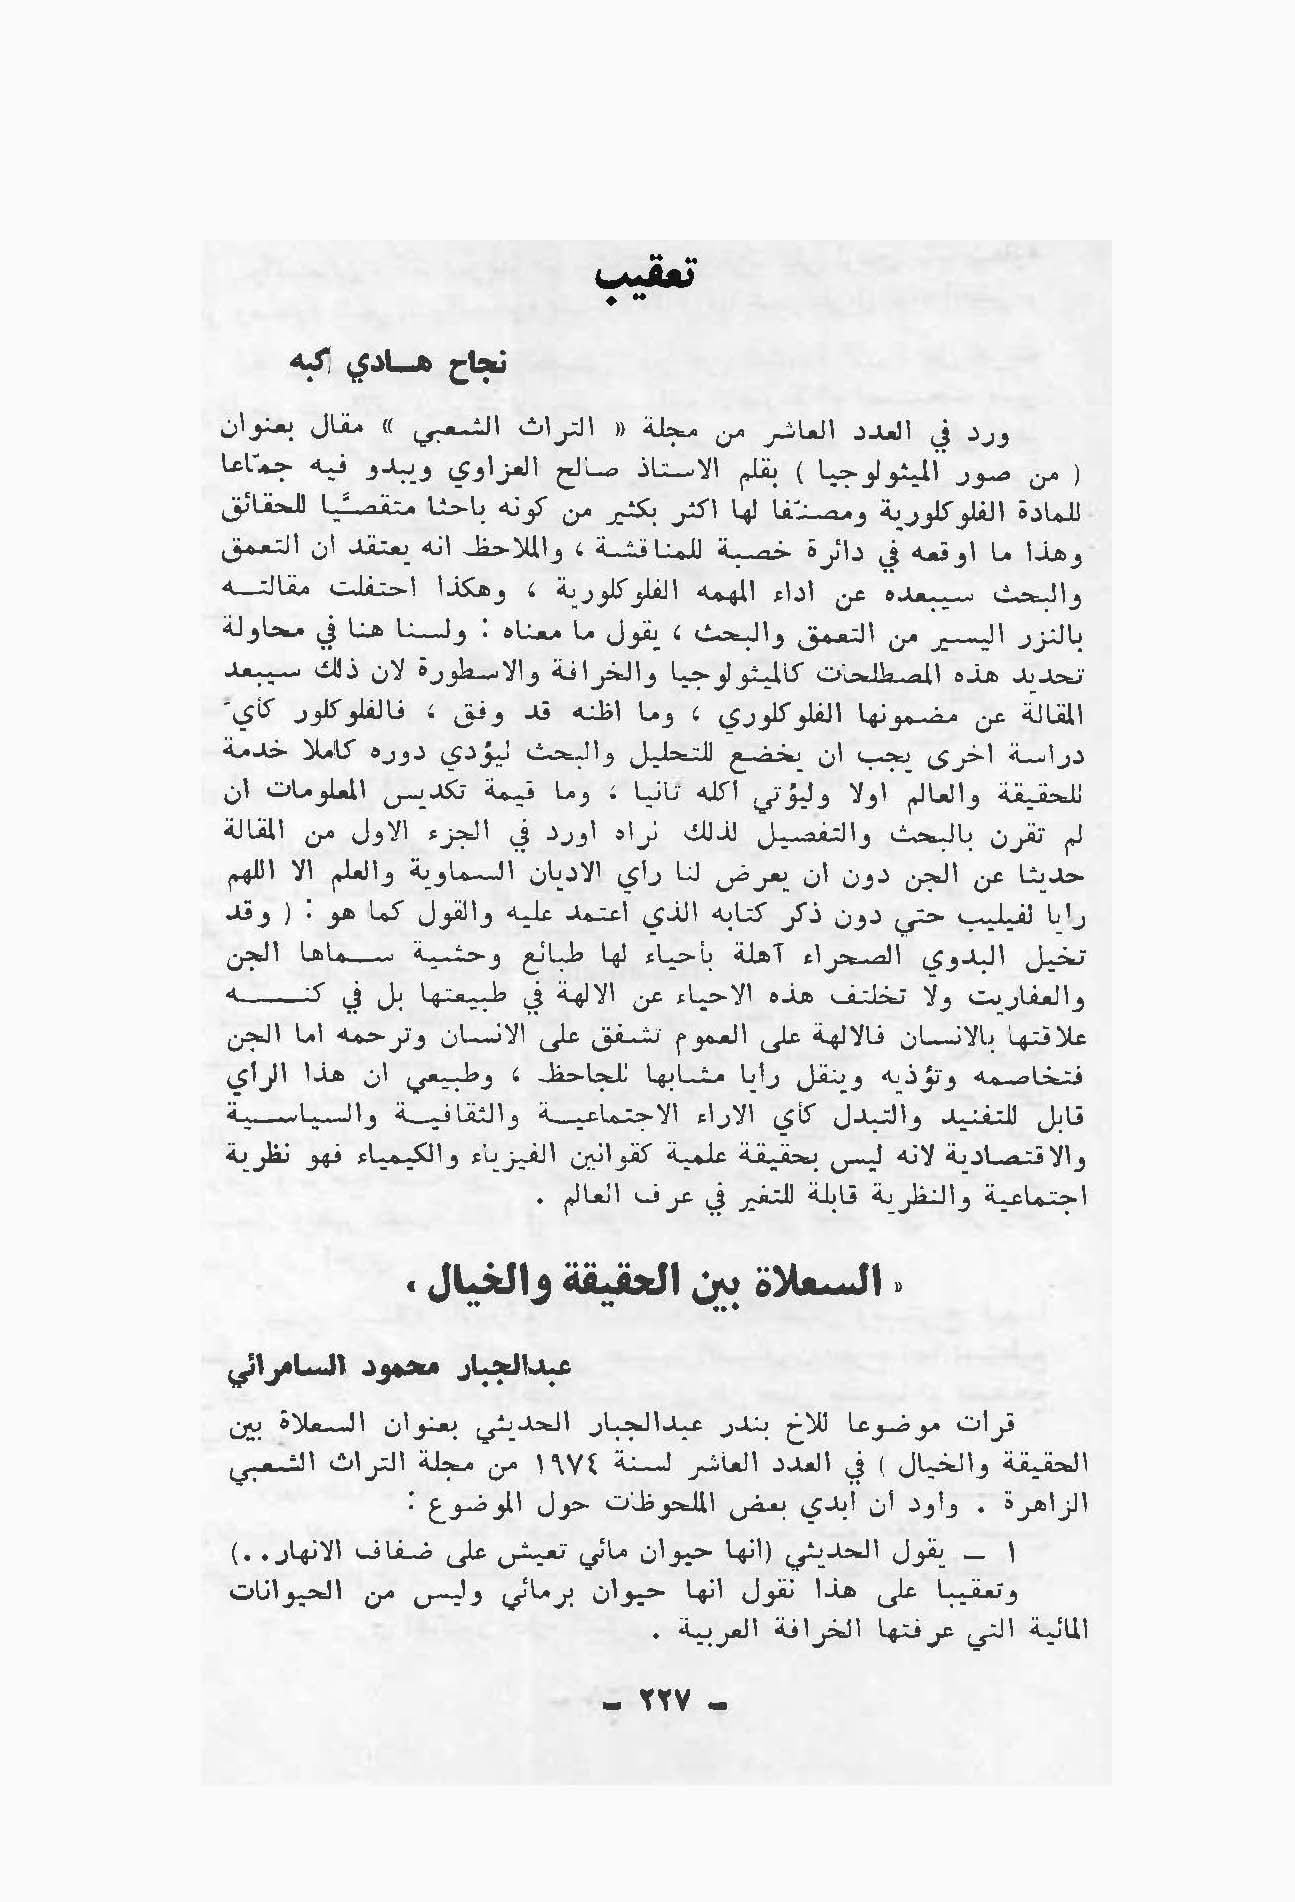 تعقيب
نجاح هـادي كبه
ورد في العدد العاشر من مجلة « التراث الشعبي » مقال بعنوان
( من صور الميثولوجيا ) بقلم الاستاذ صالح العزاوي ويبدو فيه جمّاعا
للمادة الفلوكلورية ومصنّفا لها اكثر بكثير من كونه باحثا متقصّيا للحقائق
وهذا ما اوقعه في دائرة خصبة للمناقشة ، والملاحظ انه يعتقد ان التعمق
والبحث سيبعده عن اداء المهمه الفلوكلورية ، وهكذا احتفلت مقالتــه
بالنزر اليسير من التعمق والبحث ، يقول ما معناه : ولسنا هنا في محاولة
تحديد هذه المصطلحات كالميثولوجيا والخرافة والاسطورة لان ذلك سيبعد
المقالة عن مضمونها الفلوكلوري ، وما اظنه قد وفق ، فالفلوكلور كأيّ
دراسة اخرى يجب ان يخضع للتحليل والبحث ليؤدي دوره كاملا خدمة
للحقيقة والعالم اولا وليؤتي اكله ثانيا ، وما قيمة تكديس المعلومات ان
لم تقرن بالبحث والتفصيل لذلك نراه اورد في الجزء الاول من المقالة
حديثا عن الجن دون ان يعرض لنا رأي الاديان السماوية والعلم الا اللهم
رايا لفيليب حتي دون ذكر كتابه الذي اعتمد عليه والقول كما هو : ( وقد
تخيل البدوي الصحراء آهلة بأحياء لها طبائع وحشية ســماها الجن
والعفاريت ولا تخلتف هذه الاحياء عن الالهة في طبيعتها بل في كنــــه
علاقتها بالانسان فالالهة على العموم تشفق على الانسان وترحمه اما الجن
فتخاصمه وتؤذيه وينقل رايا مشابها للجاحظ ، وطبيعي ان هذا الرأي
قابل للتفنيد والتبدل كأي الاراء الاجتماعيــة والثقافيــة والسياســية
والاقتصادية لانه ليس بحقيقة علمية كقوانين الفيزياء والكيمياء فهو نظرية
اجتماعية والنظرية قابلة للتغير في عرف العالم .
« السعلاة بين الحقيقة والخيال »
عبدالجبار محمود السامرائي
قرأت موضوعا للاخ بندر عبدالجبار الحديثي بعنوان السعلاة بين
الحقيقة والخيال ) في العدد العاشر لسنة ١٩٧٤ من مجلة التراث الشعبي
الزاهرة . واود أن ابدي بعض الملحوظات حول الموضوع :
١ ــ يقول الحديثي (انها حيوان مائي تعيش على ضفاف الانهار..)
وتعقيبا على هذا نقول انها حيوان برمائي وليس من الحيوانات
المائية التي عرفتها الخرافة العربية .
ــ ٢٢٧ ــ